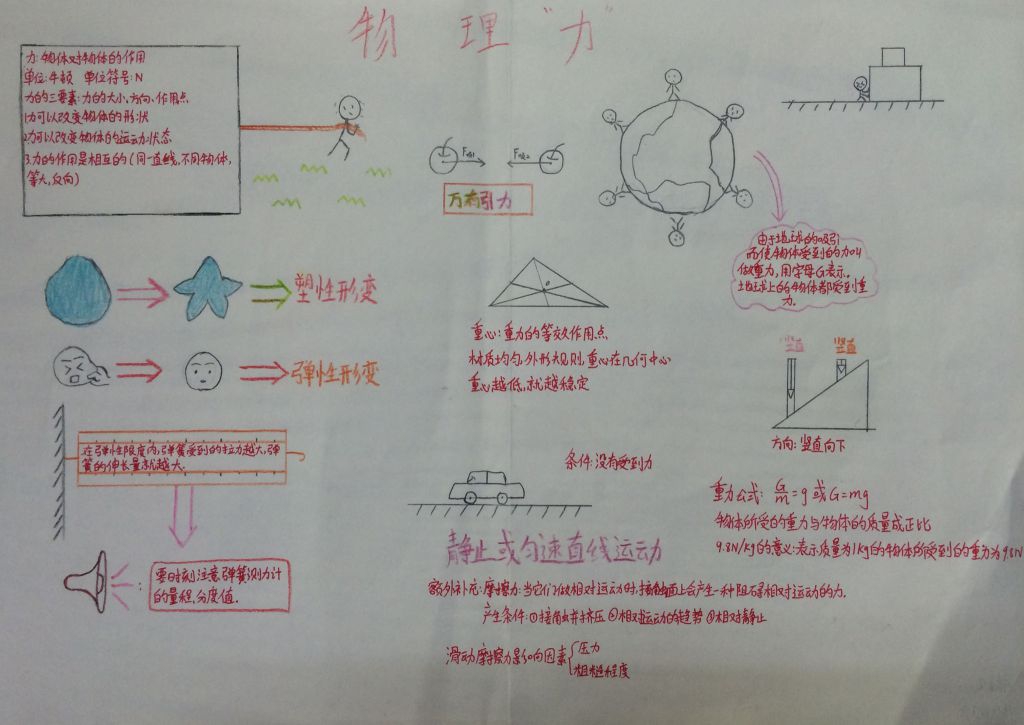 物理"力"
力:物体对物体的作用
单位:牛顿 单位符号:N
力的三要素:力的大小、方向、作用点
1.力可以改变物体的形状
2.力可以改变物体的运动状态
3.力的作用是相互的(同一直线,不同物体,
等大,反向)
F吸1
F吸2
万有引力
由于地球的吸引
而使物体受到的力叫
做重力,用字母G表示。
地球上的物体都受到重
力。
塑性形变
弹性形变
重心:重力的等效作用点
材质均匀,外形规则,重心在几何中心
重心越低,就越稳定
竖直
竖直
方向:竖直向下
在弹性限度内,弹簧受到的拉力越大,弹
簧的伸长量就越大.
要时刻注意,弹簧测力计
的量程,分度值.
条件:没有受到力
静止或匀速直线运动
重力公式: G/m=g 或G=mg
物体所受的重力与物体的质量成正比
9.8N/kg的意义:表示质量为1kg的物体所受到的重力为9.8N
额外补充:摩擦力:当它们做相对运动时,接触面上会产生一种阻碍相对运动的力.
产生条件:①接触并挤压 ②相对运动的趋势 ③相对静止
滑动摩擦力影响因素{压力
粗糙程度